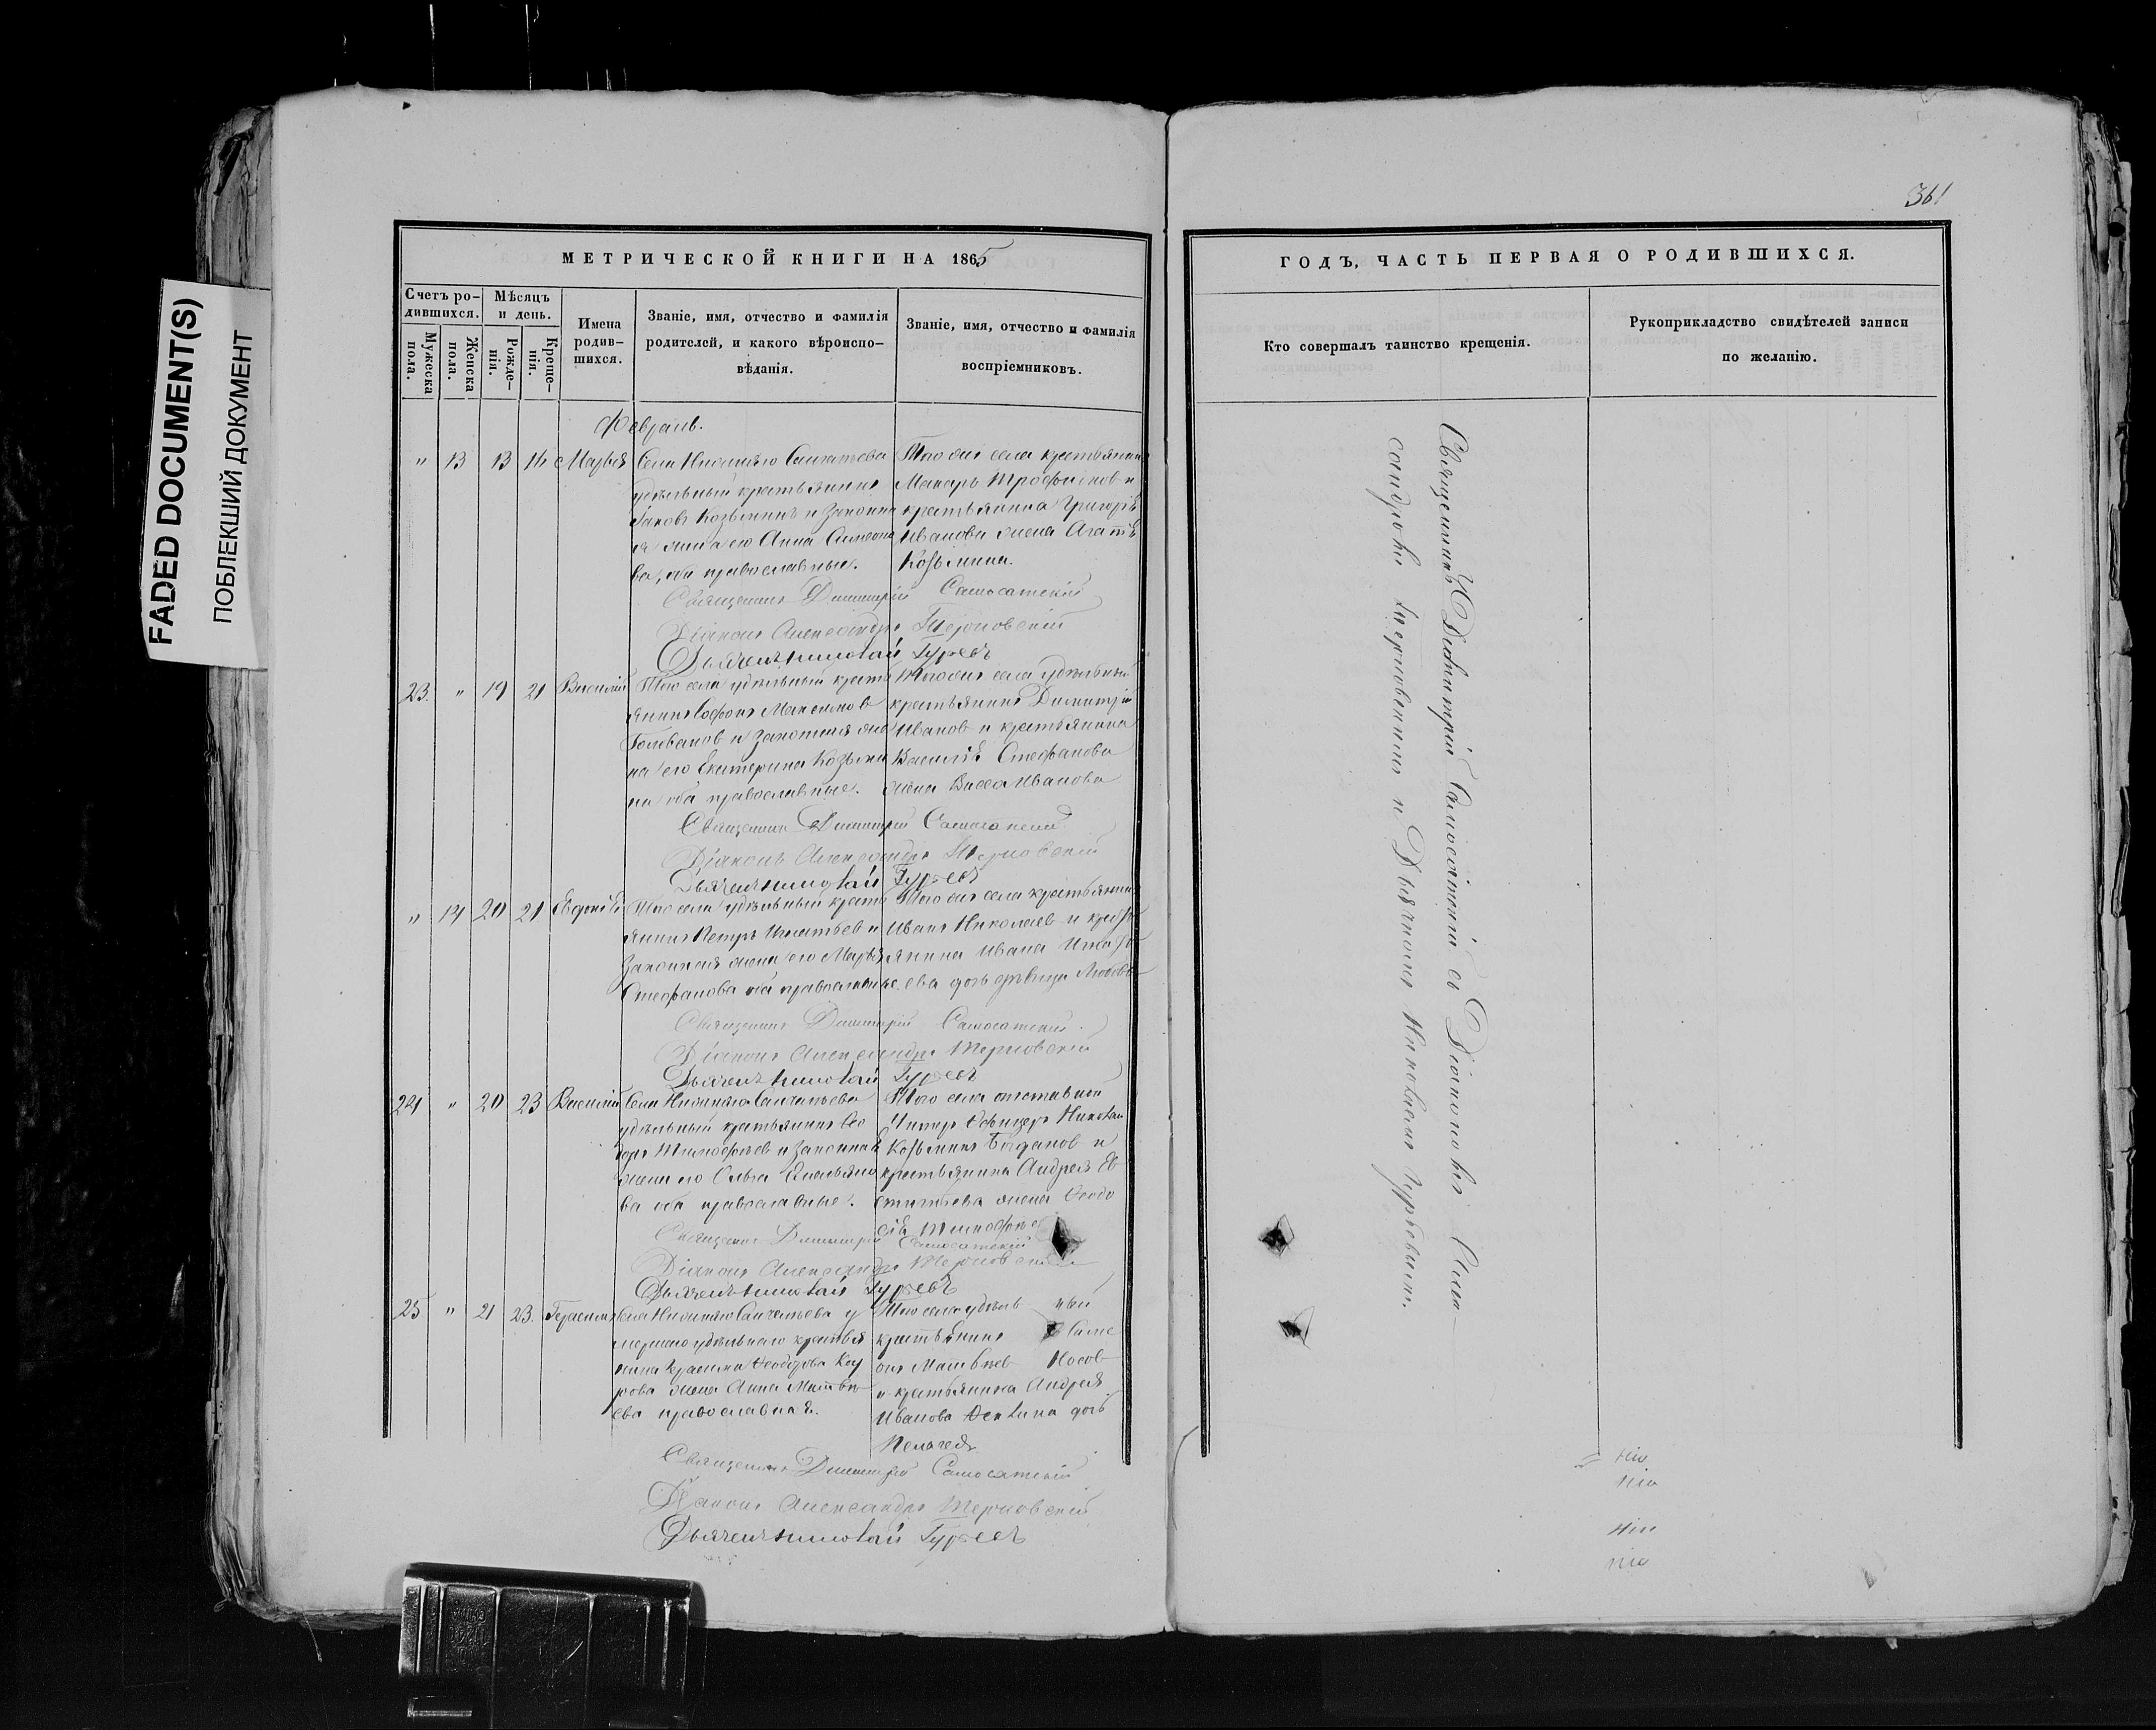 FADED DOCUMENT(S)
ПОБЛЕКШИЙ ДОКУМЕНТ
361
МЕТРИЧЕСКОЙ КНИГИ НА 1865
Счетъ ро-
дившихся.
Мужеска
пола.
Женска
пола.
Мѣсяцъ
и день.
Рожде-
нія.
Креще-
нія.
Имена
родив-
шихся.
Званіе, имя, отчество и фамилія
родителей, и какого вѣроиспо-
вѣданія.
Званіе, имя, отчество и фамилія
воспріемниковъ.
Февраль.
" 13 13 14 Марья
Села
удѣльный крестьянинъ
Іаковъ Козьминъ и законна
я жена его Анна Симеоно
ва, оба православные.
Того же села крестьянинъ
Макаръ Трофимовъ и
крестьянина Григорія
Иванова жена Агафія
Козьмина.
Священникъ Димитрій Самосатскій
Діаконъ Александръ Терновскій
Дьячекъ Николай Гурьевъ
23. " 19 21 Василій
Того села удѣльный кресть
янинъ Софонъ Максимовъ
Голованов и законная же
на его Екатерина Козьми
на оба православные.
Того же села удѣльный
крестьянинъ Димитрій
Иванов и крестьянина
Василія Стефанова
жена Васса Иванова
Священникъ Димитрій Самосатскій
Діаконъ Александръ Терновскій
Дьячекъ Николай Гурьевъ
" 14 20 21 Евдокія
Того села удѣльный кресть
янинъ Петръ Игнатьев и
законная жена его Марья
Стефанова оба православные.
Того же села крестьянинъ
Иванъ Николаев и кресть
янина Ивана Игнать
ева дочь дѣвица Любовь
Священникъ Димитрій Самосатскій
Діаконъ Александръ Терновскій
Дьячекъ Николай Гурьевъ
24 " 20 23 Василій
Села
удѣльный крестьянинъ Ѳео
доръ Тимофѣев и законная
жена его Ольга Емельяно
ва оба православные.
Того села отставной
Унтеръ Офицеръ Николай
Козьминъ Богданов и
крестьянина Андрея Ев
жена Ѳеодо
сія Тимофѣе
Священникъ Димитрій Самосатскій
Діаконъ Александръ Терновскій
Дьячекъ Николай Гурьевъ
25 " 21 23. Герасимъ
Села у
мершаго удѣльнаго кресть
янина Герасима Ѳеодорова
жена Анна Матвѣ
ева православная.
Того села удѣль ный
крестьянинъ Симе
онъ Матвѣев Носов
и крестьянина Андрея
Иванова дочь
Пелагея
Священникъ Димитрій Самосатскій
Діаконъ Александръ Терновскій
Дьячекъ Николай Гурьевъ
ГОДЪ, ЧАСТЬ ПЕРВАЯ О РОДИВШИХСЯ.
Кто совершалъ таинство крещенія.
Рукоприкладство свидѣтелей записи
по желанію.
Священникъ Димитрій Самосатскій съ Діакономъ Алек-
сандромъ Терновскимъ и Дьячкомъ Николаемъ Гурьевымъ.